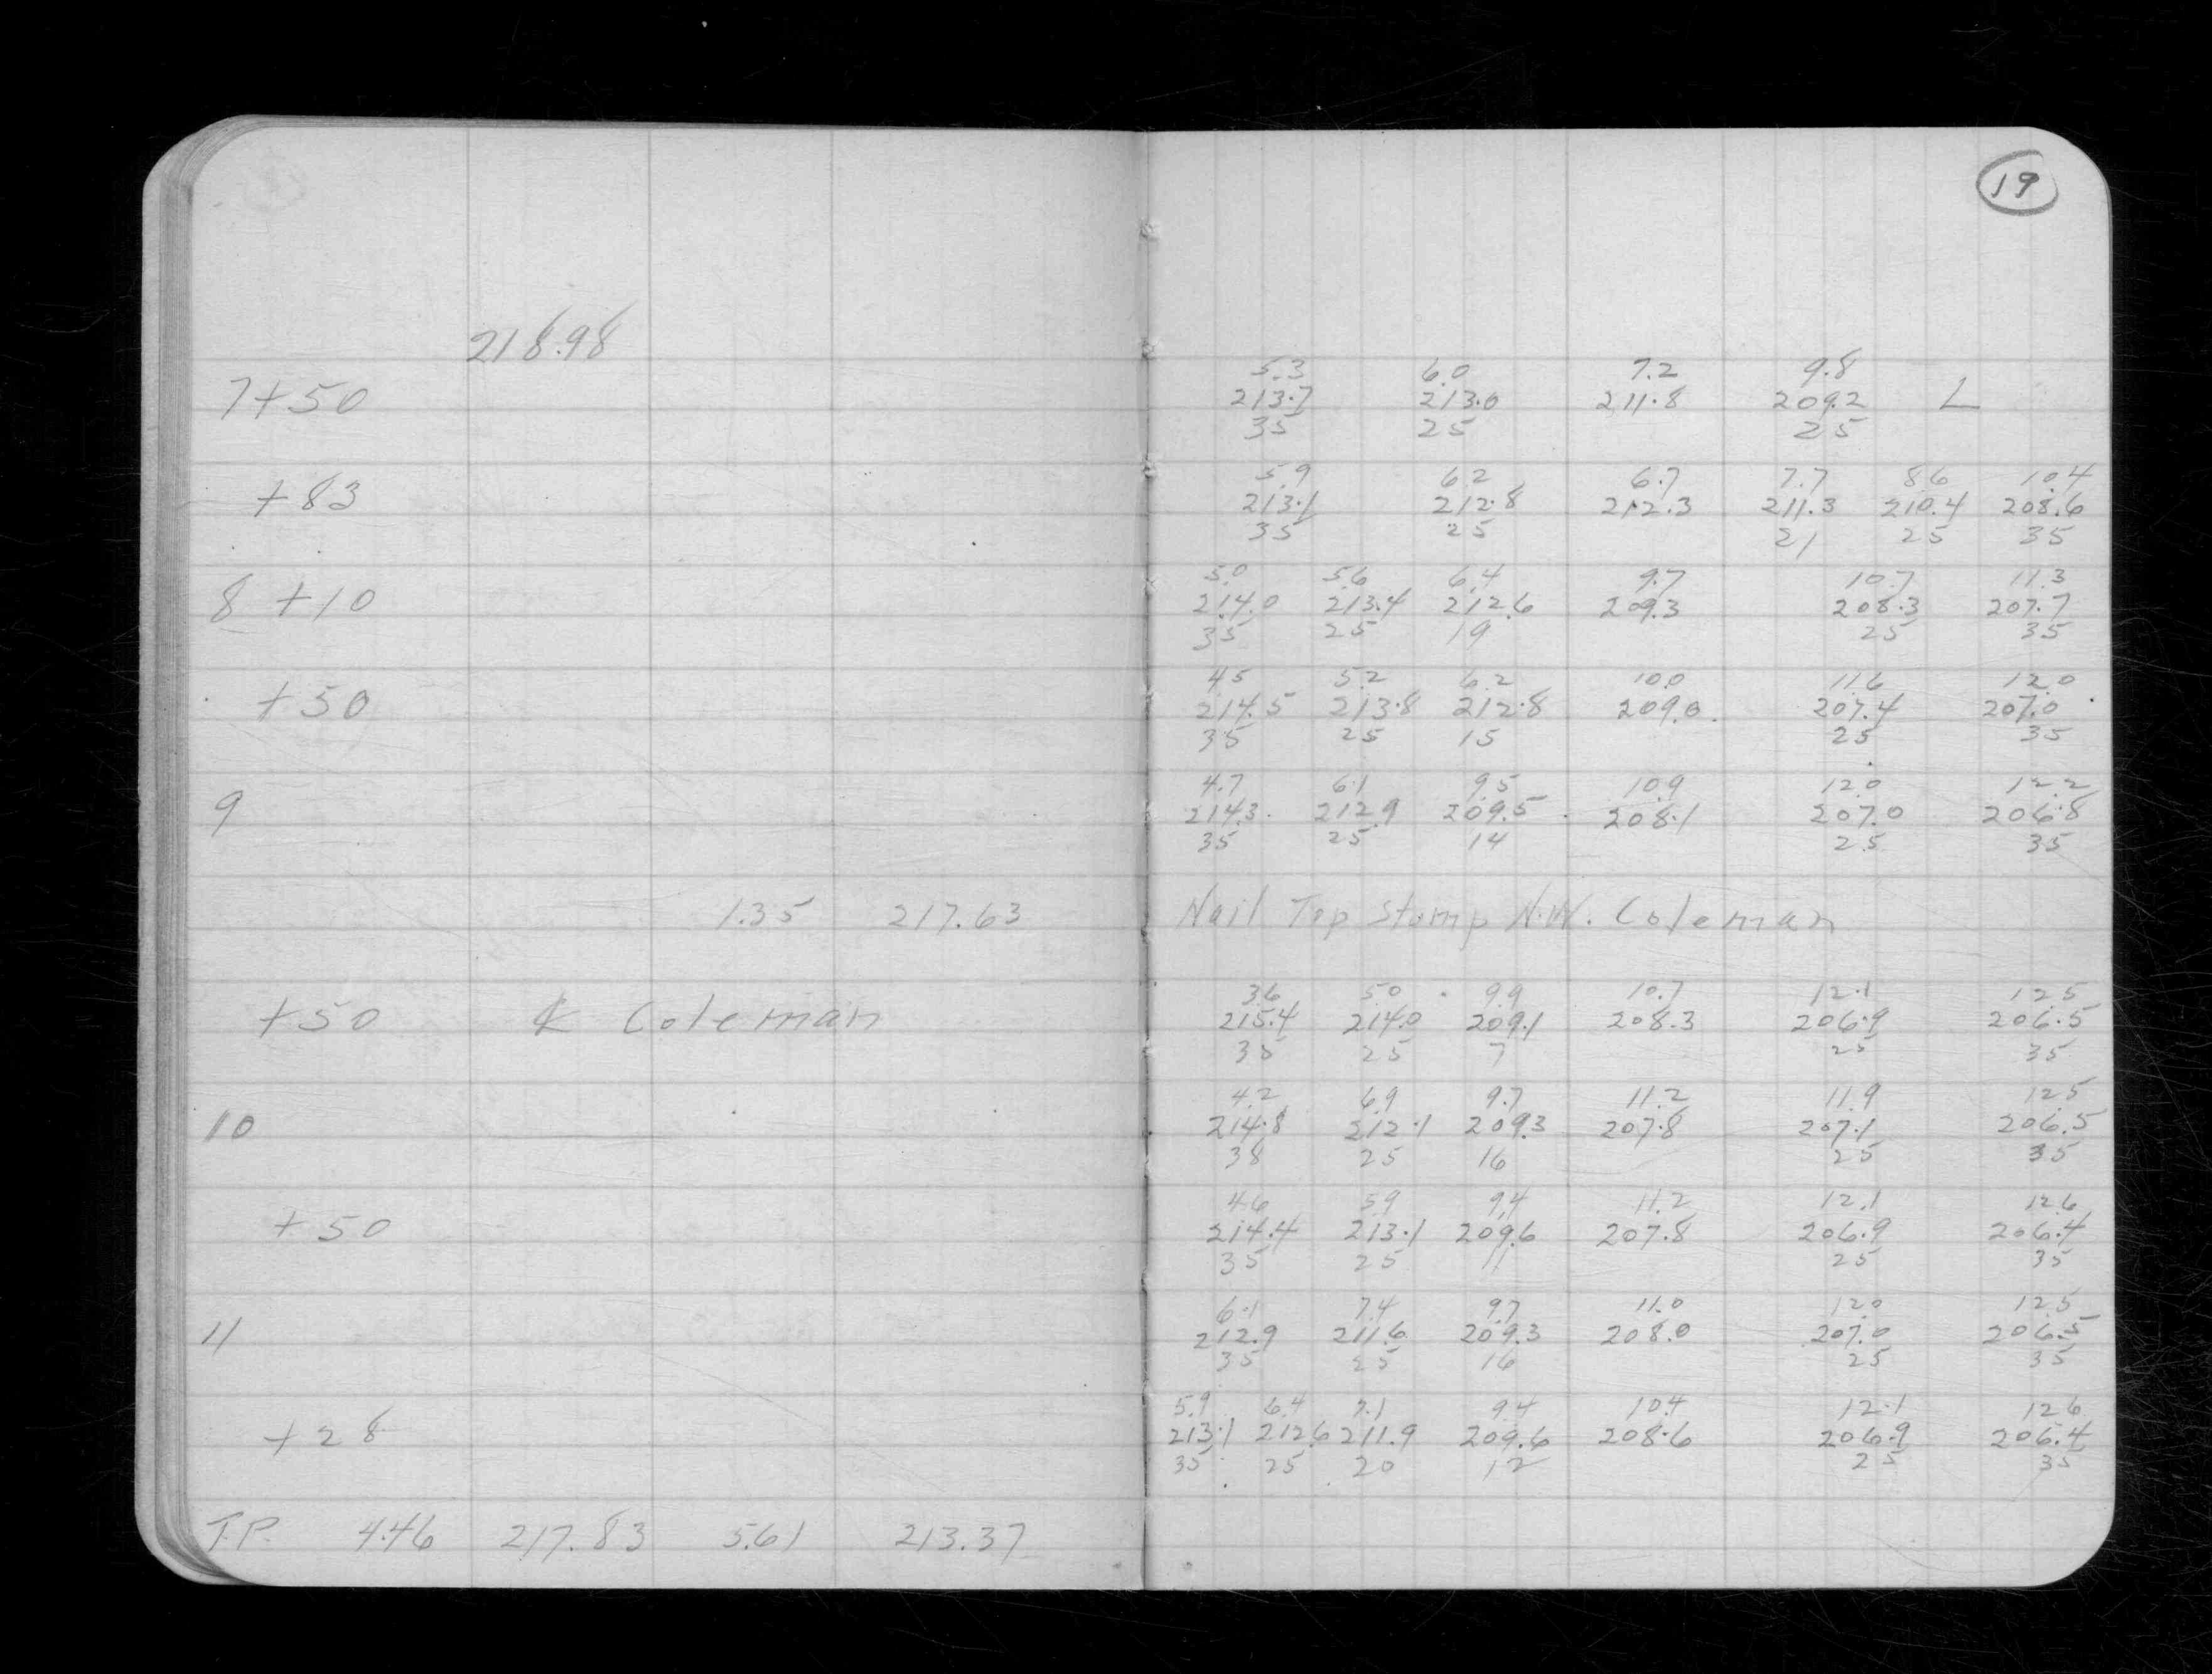 19
218.98
5.3 6.0 7.2 9.8
7+50 213.7 213.0 211.8 209.2 L
35 25 25
5.9 6.2 6.7 7.7 8.6 10.4
+83 213.1 212.8 212.3 211.3 210.4 208.6
35 25 21 25 35
5.0 5.6 6.4 9.7 10.7 11.3
8 +10 214.0 213.4 212.6 209.3 208.3 207.7
35 25 19 25 35
4.5 5.2 6.2 10.0 11.6 12.0
+50 214.5 213.8 212.8 209.0 207.4 207.0
35 25 15 25 35
4.7 6.1 9.5 10.9 12.0 12.2
9 214.3 212.9 209.5 208.1 207.0 206.8
35 25 14 25 35
1.35 217.63 Nail Top Stump N.W. Coleman
3.6 5.0 9.9 10.7 12.1 12.5
+50 ℄ Coleman 215.4 214.0 209.1 208.3 206.9 206.5
35 25 7 25 35
4.2 6.9 9.7 11.2 11.9 12.5
10 214.8 212.1 209.3 207.8 207.1 206.5
38 25 16 25 35
4.6 5.9 9.4 11.2 12.1 12.6
+50 214.4 213.1 209.6 207.8 206.9 206.4
35 25 11 25 35
6.1 7.4 9.7 11.0 12.0 12.5
11 212.9 211.6 209.3 208.0 207.0 206.5
35 25 16 25 35
5.9 6.4 7.1 9.4 10.4 12.1 12.6
+28 213.1 212.6 211.9 209.6 208.6 206.9 206.4
35 25 20 12 25 35
T.P. 4.46 217.83 5.61 213.37